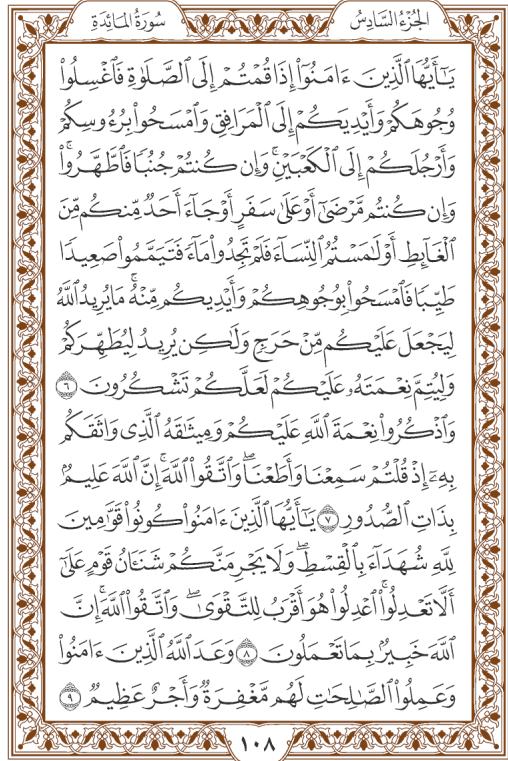 الجُزْءُ السَّادِسُ
سُورَةُ المَائِدَةِ
يَٰٓأَيُّهَا ٱلَّذِينَ ءَامَنُوٓاْ إِذَا قُمۡتُمۡ إِلَى ٱلصَّلَوٰةِ فَٱغۡسِلُواْ
وُجُوهَكُمۡ وَأَيۡدِيَكُمۡ إِلَى ٱلۡمَرَافِقِ وَٱمۡسَحُواْ بِرُءُوسِكُمۡ
وَأَرۡجُلَكُمۡ إِلَى ٱلۡكَعۡبَيۡنِۚ وَإِن كُنتُمۡ جُنُبٗا فَٱطَّهَّرُواْۚ
وَإِن كُنتُم مَّرۡضَىٰٓ أَوۡ عَلَىٰ سَفَرٍ أَوۡ جَآءَ أَحَدٞ مِّنكُم مِّنَ
ٱلۡغَآئِطِ أَوۡ لَٰمَسۡتُمُ ٱلنِّسَآءَ فَلَمۡ تَجِدُواْ مَآءٗ فَتَيَمَّمُواْ صَعِيدٗا
طَيِّبٗا فَٱمۡسَحُواْ بِوُجُوهِكُمۡ وَأَيۡدِيكُم مِّنۡهُۚ مَا يُرِيدُ ٱللَّهُ
لِيَجۡعَلَ عَلَيۡكُم مِّنۡ حَرَجٖ وَلَٰكِن يُرِيدُ لِيُطَهِّرَكُمۡ
وَلِيُتِمَّ نِعۡمَتَهُۥ عَلَيۡكُمۡ لَعَلَّكُمۡ تَشۡكُرُونَ ٦
وَٱذۡكُرُواْ نِعۡمَةَ ٱللَّهِ عَلَيۡكُمۡ وَمِيثَٰقَهُ ٱلَّذِي وَاثَقَكُم
بِهِۦٓ إِذۡ قُلۡتُمۡ سَمِعۡنَا وَأَطَعۡنَاۖ وَٱتَّقُواْ ٱللَّهَۚ إِنَّ ٱللَّهَ عَلِيمُۢ
بِذَاتِ ٱلصُّدُورِ ٧ يَٰٓأَيُّهَا ٱلَّذِينَ ءَامَنُواْ كُونُواْ قَوَّٰمِينَ
لِلَّهِ شُهَدَآءَ بِٱلۡقِسۡطِۖ وَلَا يَجۡرِمَنَّكُمۡ شَنَـَٔانُ قَوۡمٍ عَلَىٰٓ
أَلَّا تَعۡدِلُواْۚ ٱعۡدِلُواْ هُوَ أَقۡرَبُ لِلتَّقۡوَىٰۖ وَٱتَّقُواْ ٱللَّهَۚ إِنَّ
ٱللَّهَ خَبِيرُۢ بِمَا تَعۡمَلُونَ ٨ وَعَدَ ٱللَّهُ ٱلَّذِينَ ءَامَنُواْ
وَعَمِلُواْ ٱلصَّٰلِحَٰتِ لَهُم مَّغۡفِرَةٞ وَأَجۡرٌ عَظِيمٞ ٩
١٠٨